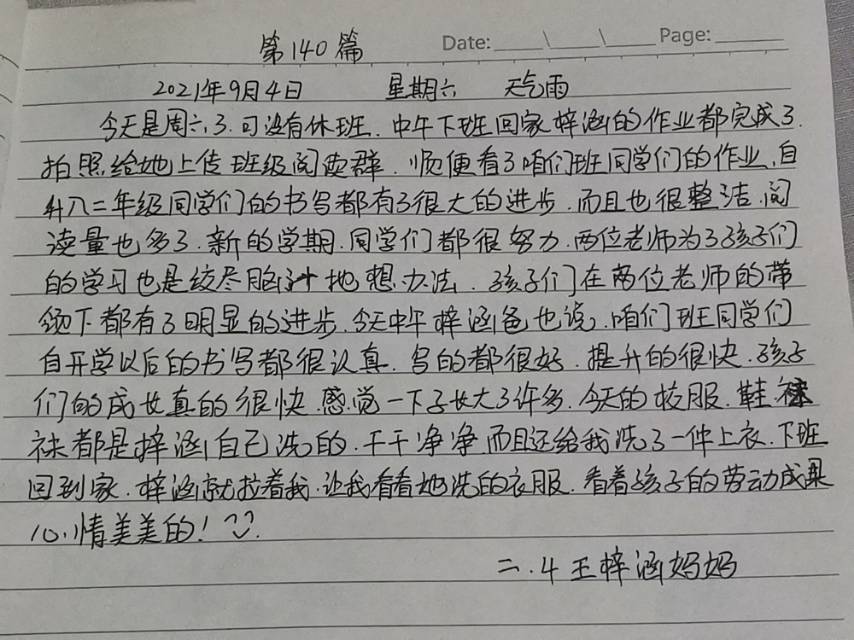 第140篇 Date: Page:
2021年9月4日 星期六 天气雨
今天是周六了.可没有休班.中午下班回家梓涵的作业都完成了.
拍照给她上传班级阅读群.顺便看了咱们班同学们的作业,自
升入二年级同学们的书写都有了很大的进步.而且也很整洁.阅
读量也多了.新的学期.同学们都很努力.两位老师为了孩子们
的学习也是绞尽脑汁地想办法.孩子们在两位老师的带
领下都有了明显的进步.今天中午梓涵爸也说,咱们班同学们
自开学以后的书写都很认真.写的都很好.提升的很快.孩子
们的成长真的很快.感觉一下子长大了许多.今天的校服.鞋
袜都是梓涵自己洗的.干干净净.而且还给我洗了一件上衣.下班
回到家.梓涵就拉着我.让我看看她洗的衣服.看着孩子的劳动成果
心情美美的!
二.4王梓涵妈妈